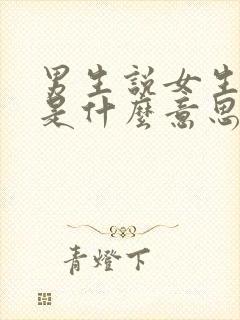 男生說女生
是什麼意思
青燈下